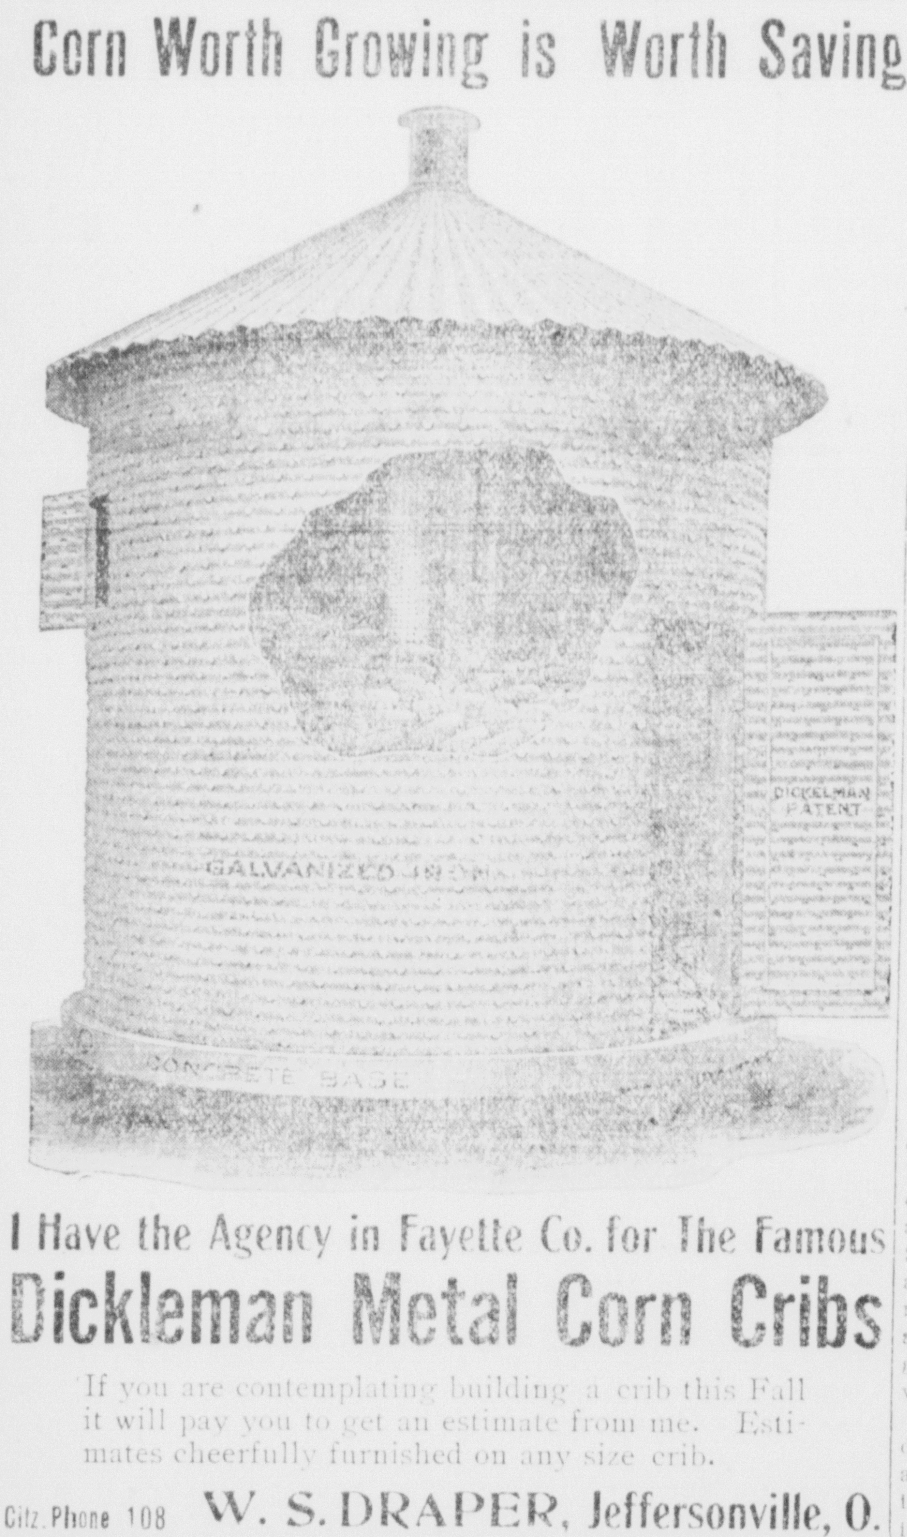 Corn Worth Growing is Worth Saving
DICKELMAN
PATENT
GALVANIZED IRON
CONCRETE BASE
I Have the Agency in Fayette Co. for The Famous
Dickleman Metal Corn Cribs
If you are contemplating building a crib this Fall
it will pay you to get an estimate from me. Esti-
mates cheerfully furnished on any size crib.
Citz. Phone 108 W. S. DRAPER, Jeffersonville, O.